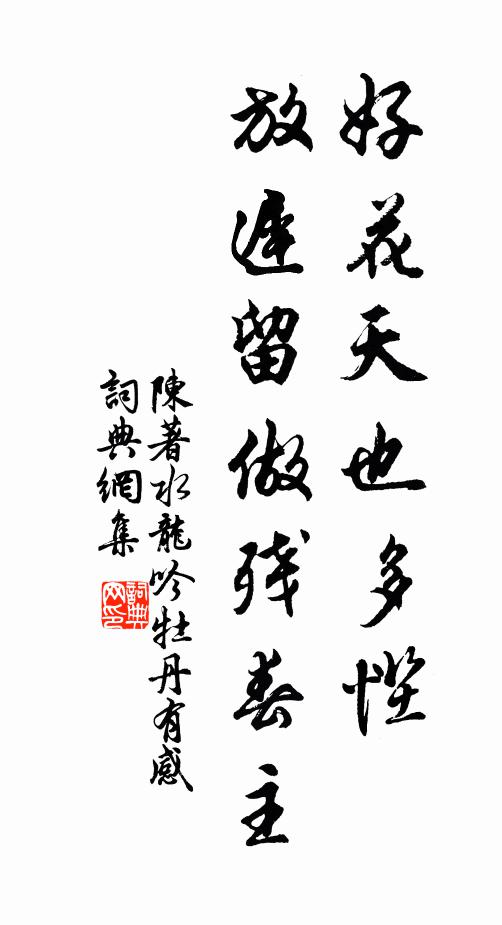 好花天也多慳
放遲留做残春主
陳著水龍吟牡丹有感
詞典網集
詞典网印